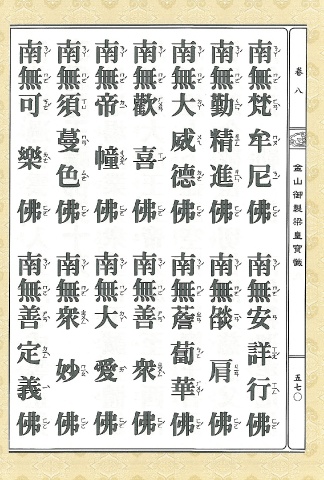 卷八
金山御製梁皇寶懺
五七〇
南無梵牟尼佛
南無安詳行佛
南無勤精進佛
南無燄肩佛
南無大威德佛
南無薝蔔華佛
南無歡喜佛
南無善眾佛
南無帝幢佛
南無大愛佛
南無須蔓色佛
南無眾妙佛
南無可樂佛
南無善定義佛